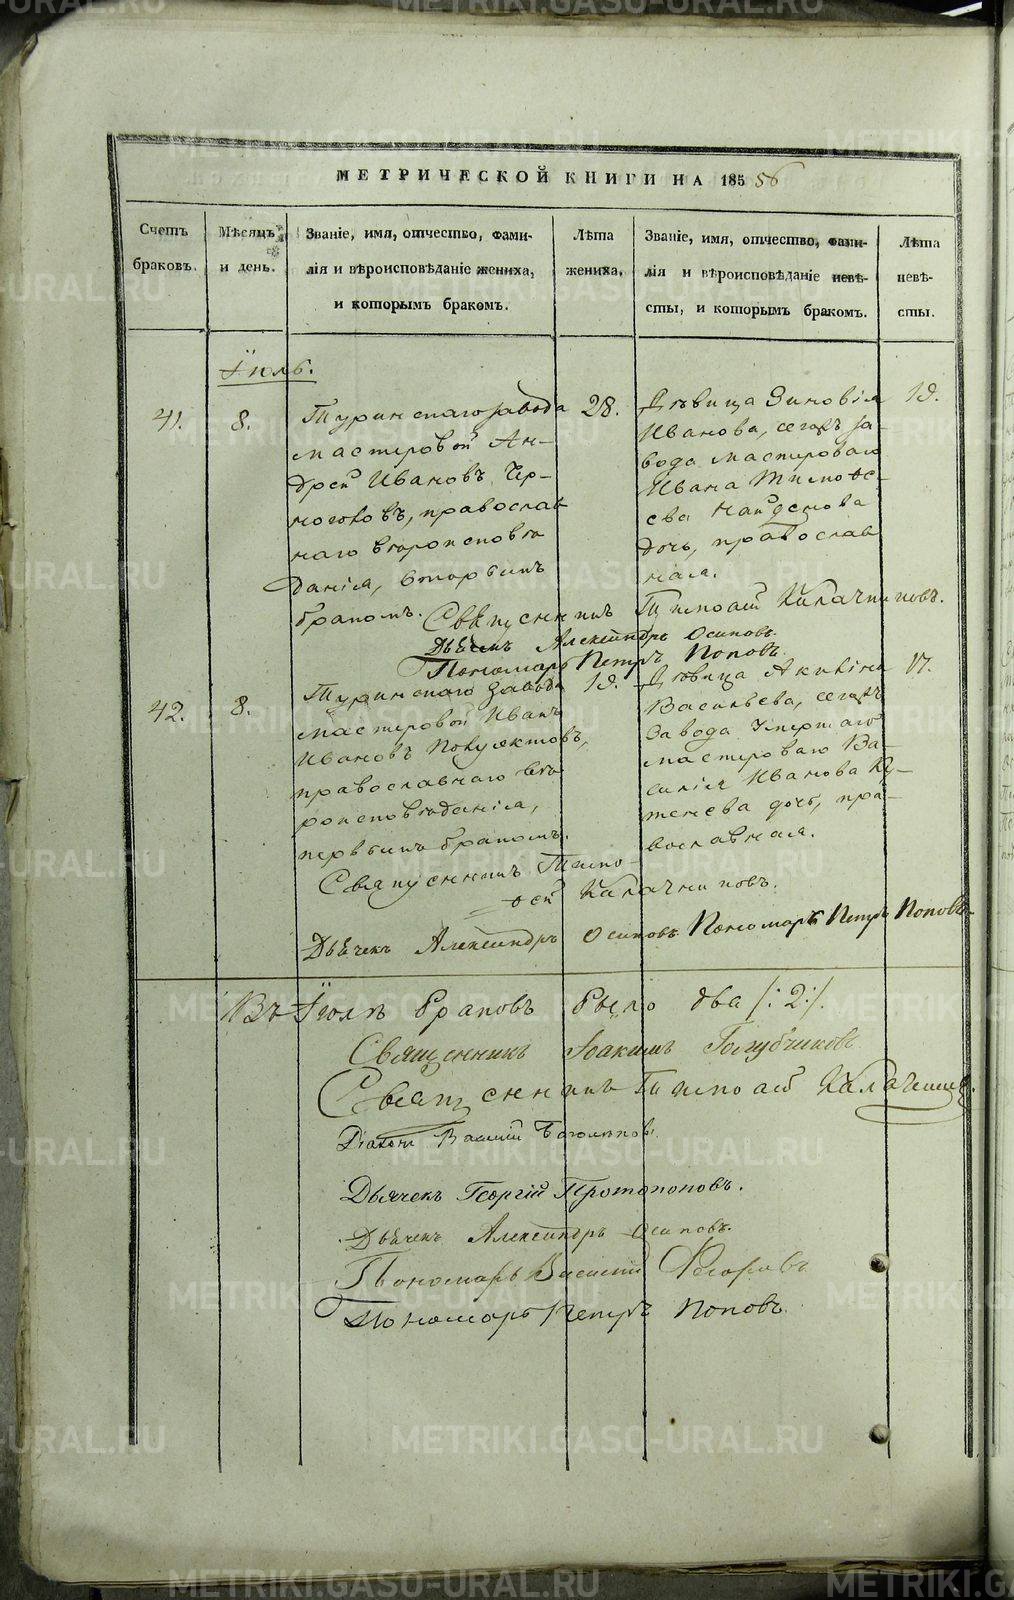 МЕТРИЧЕСКОЙ КНИГИ НА 185 56
Счетъ браковъ.
Мѣсяцъ и день.
Званіе, имя, отчество, фами-
лія и вѣроисповѣданіе жениха,
и которымъ бракомъ.
Лѣта жениха.
Званіе, имя, отчество, фами-
лія и вѣроисповѣданіе невѣ-
сты, и которымъ бракомъ.
Лѣта невѣ-
сты.
Іюль.
41.
8.
Туринскаго завода
мастеровой Ан-
дрей Ивановъ Чер-
ноголовъ, православ
наго вѣроисповѣ
данія, вторымъ
бракомъ.
28.
Дѣвица Зиновія
Иванова, сегожъ за-
вода мастероваго
Ивана Тимоѳе-
ева
дочь, православ
ная.
19.
Священникъ Тимоѳей Калачниковъ.
Дьячекъ Александръ Осиповъ.
Пономарь Петръ Поповъ.
42.
8.
Туринскаго завода
мастеровой Иванъ
Ивановъ Полуектовъ,
православнаго вѣ
роисповѣданія,
первымъ бракомъ.
19.
Дѣвица Акилина
Васильева, сегожъ
завода умершаго
мастероваго Ва-
силія Иванова Ку-
тенева дочь, пра-
вославная.
17.
Священникъ Тимо-
ѳей Калачниковъ.
Дьячекъ Александръ Осиповъ. Пономарь Петръ Поповъ.
Въ Іюлѣ браковъ было два /:2:/.
Священникъ Іоакимъ Голубчиковъ
Священникъ Тимоѳей Калачниковъ.
Діаконъ Василій
Дьячекъ Георгій Протопоповъ.
Дьячекъ Александръ Осиповъ.
Пономарь Василій Ѳедоровъ
Пономарь Петръ Поповъ.
METRIKI.GASO-URAL.RU